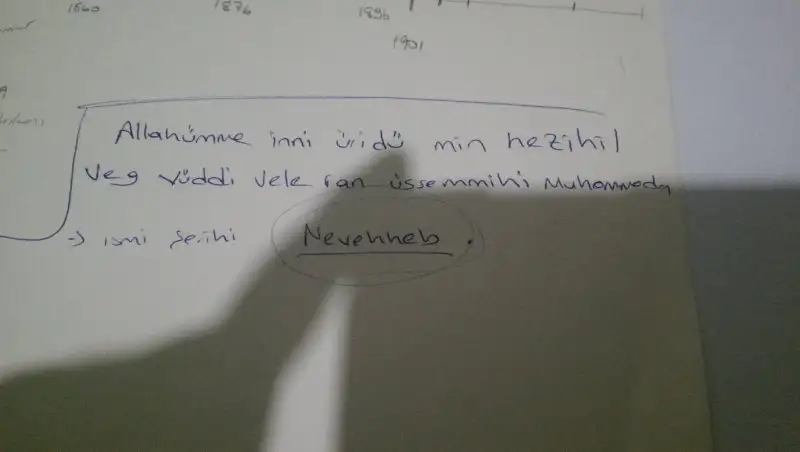 1560 1876 1896
1901
Allahümme inni üridü min hezihil
veg vüddi vele ran üssemmihi Muhammedn
→ ismi şerihi Nevehheb.